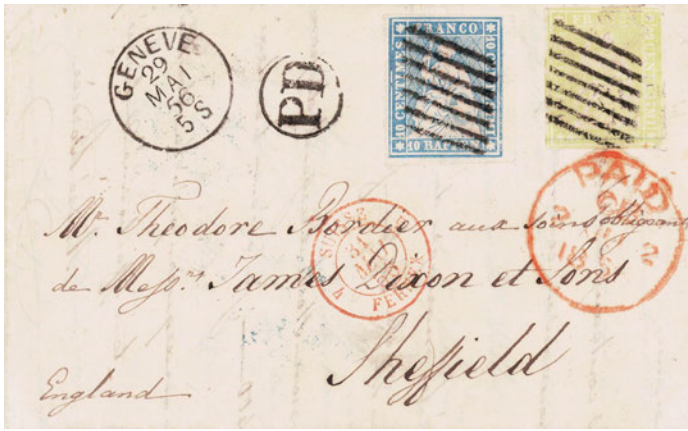 GENEVE
29
MAI
56
5 S
PD
FRANCO
10 CENTIMES
10 RAP
PAID
18
SUISSE
31
MAI
4
FER
Mr. Theodore Bordier aux soins obligeants
de Messrs James Dixon et Sons
Sheffield
England